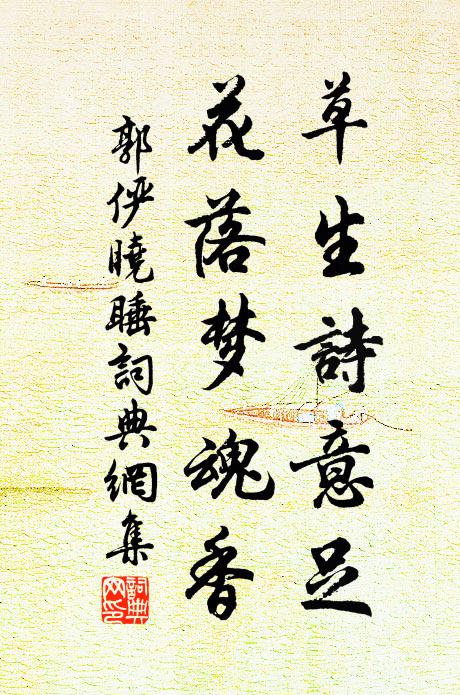 草生詩意足
花落梦魂香
郭伊曉睡詞典網集
詞典网印